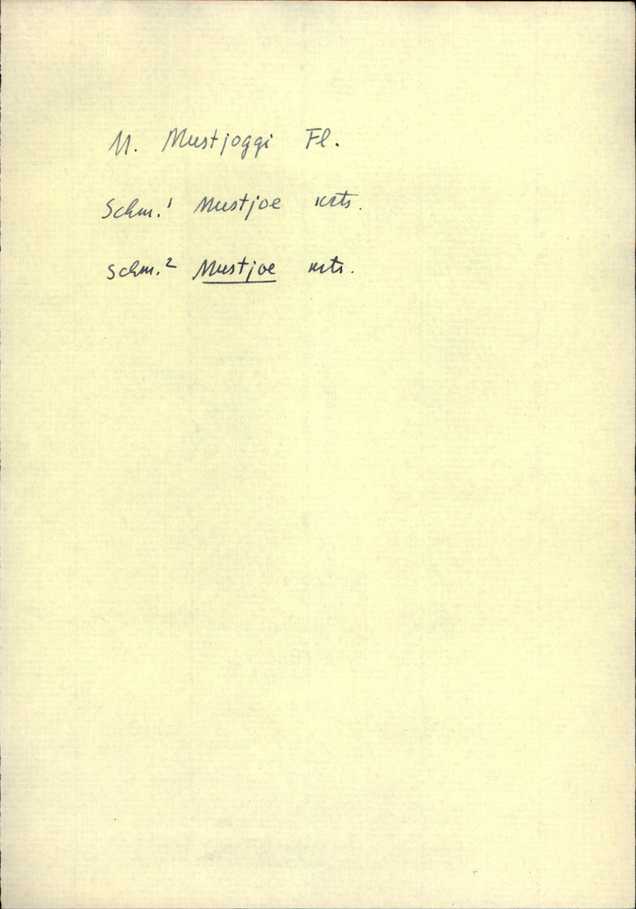 M. Mustjoggi Fl.
Schm.¹ Mustjoe krts.
Schm.² Mustjoe krts.